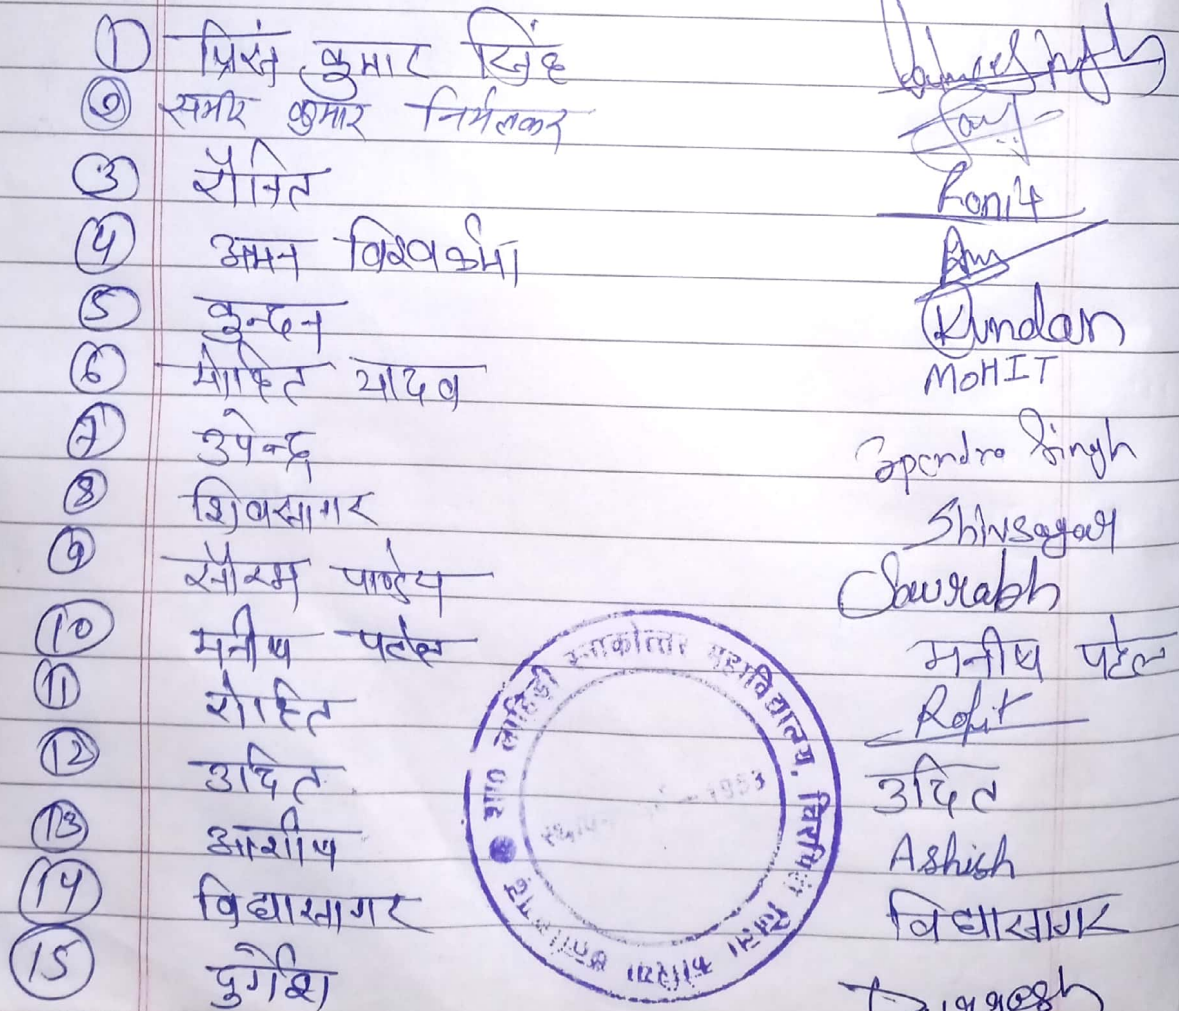 1 प्रिंस कुमार सिंह
2 समीर कुमार निर्मलकर
3 रोनित Ronit
4 अमन विश्वकर्मा
5 कुन्दन Kundan
6 मोहित यादव MOHIT
7 उपेन्द्र Upendra Singh
8 शिवसागर Shivsagar
9 सौरभ पाण्डेय Saurabh
10 मनीष पटेल मनीष पटेल
11 रोहित Rohit
12 उदित उदित
13 आशीष Ashish
14 विद्यासागर विद्यासागर
15 दुर्गेश Durgesh
शास० लाहिड़ी स्नाकोत्तर महाविद्यालय, चिरमिरी जिला कोरिया
1953